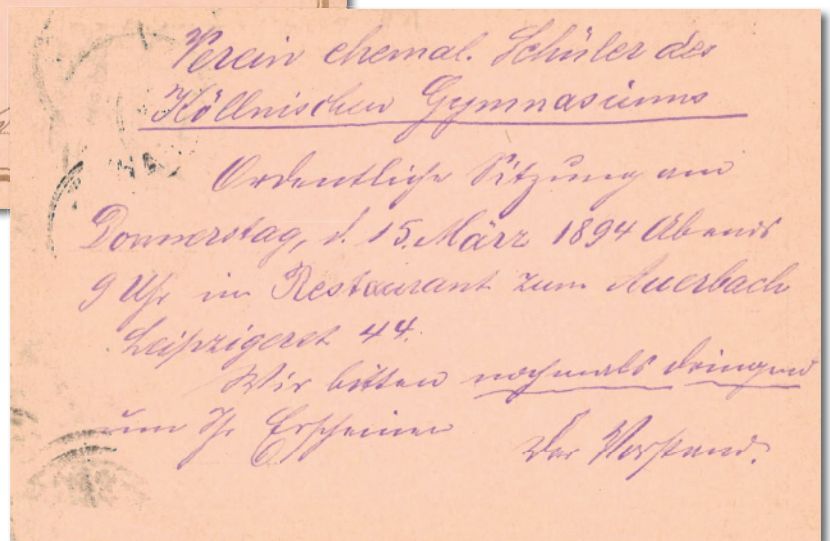 Verein ehemal. Schüler des
Köllnischen Gymnasiums
Ordentliche Sitzung am
Donnerstag, d. 15. März 1894 Abends
9 Uhr im Restaurant zum Auerbach
Leipzigerst 44.
Wir bitten nochmals dringend
um Ihr Erscheinen
Der Vorstand.